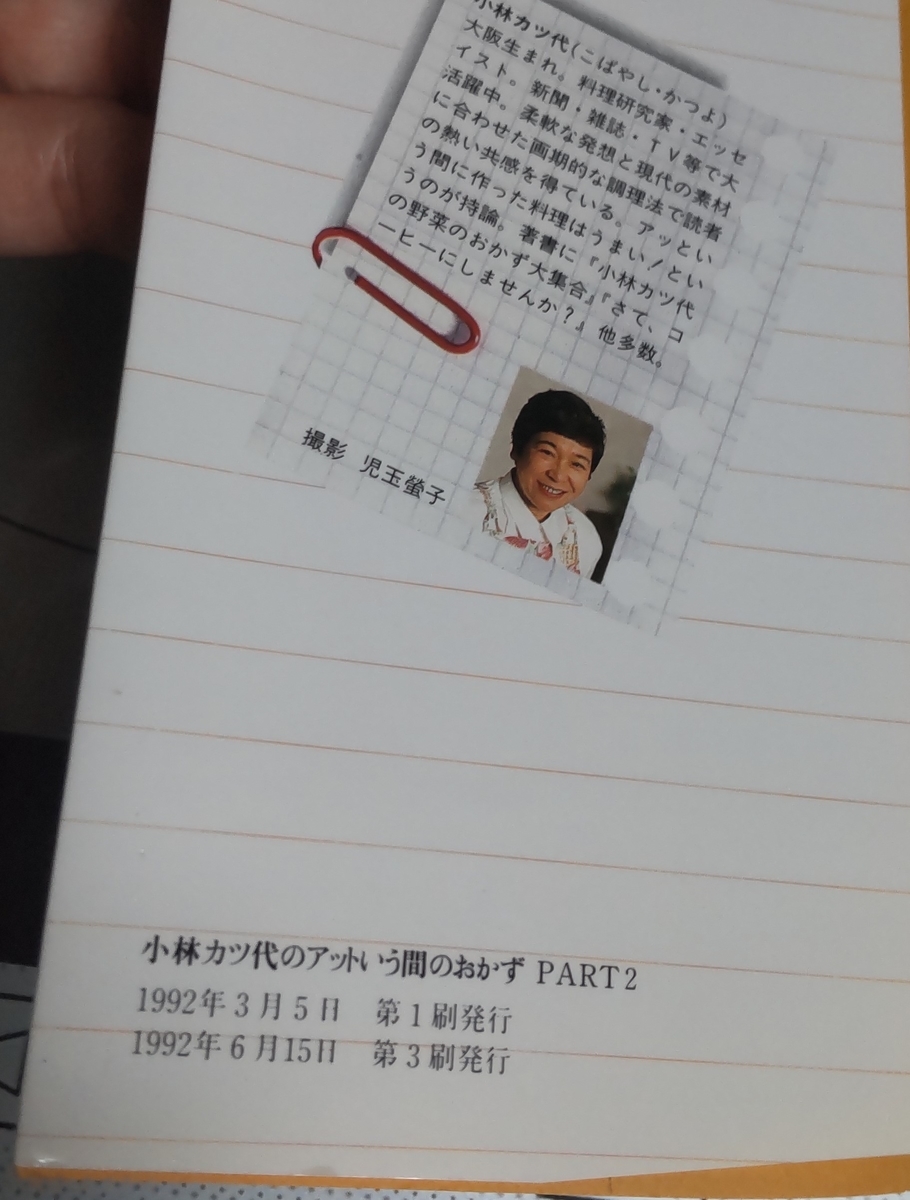 小林カツ代(こばやし・かつよ)
大阪生まれ。料理研究家・エッセ
イスト。新聞・雑誌・TV等で大
活躍中。柔軟な発想と現代の素材
に合わせた画期的な調理法で読者
の熱い共感を得ている。アッとい
う間に作った料理はうまい!とい
うのが持論。著書に『小林カツ代
の野菜のおかず大集合』『さて、コ
ーヒーにしませんか?』他多数。
撮影 児玉螢子
小林カツ代のアットいう間のおかず PART2
1992年3月5日 第1刷発行
1992年6月15日 第3刷発行